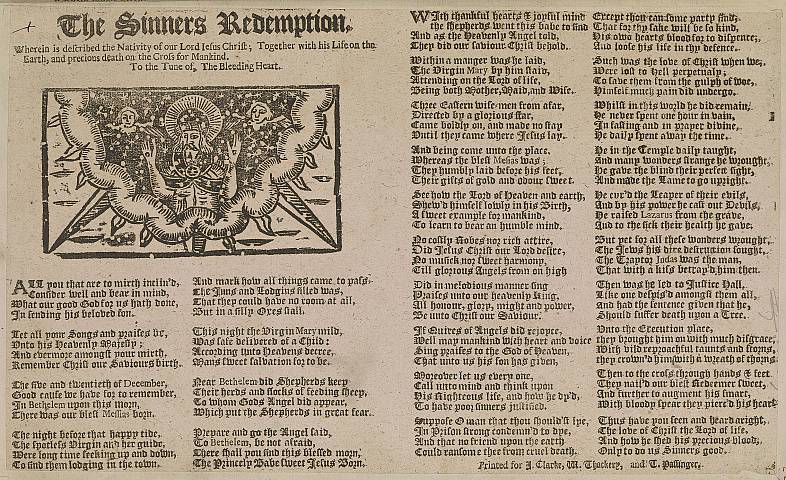 The Sinners Redemption.
Wherein is described the Nativity of our Lord Iesus Christ; Together with his Life on the
Earth, and precious death on the Cross for Mankind.
To the Tune of, The Bleeding Heart.
ALL you that are to mirth inclin'd,
Consider well and bear in mind,
What our good God for us hath done,
In sending his beloved son.
Let all your Songs and praises be,
Unto his Heavenly Majesty;
And evermore amongst your mirth,
Remember Christ our Saviours birth.
The five and twentieth of December,
Good cause we have for to remember,
In Bethelem upon this morn,
There was our blest Messias born.
The night before that happy tide,
The spotless Virgin and her guide,
Were long time seeking up and down,
To find them lodging in the town.
And mark how all things came to pass,
The Inns and Lodgins filled was,
That they could have no room at all,
But in a silly Oxes stall.
This night the Virgin Mary mild,
Was safe delivered of a Child:
According unto Heavens decree,
Mans sweet salvation for to be.
Near Bethelem did Shepherds keep
Their herds and flocks of feeding sheep,
To whom Gods Angel did appear,
Which put the Shepherds in great fear.
Prepare and go the Angel said,
To Bethelem, be not afraid,
There shall you find this blessed morn,
The Princely Babe sweet Iesus Born.
WIth thankful hearts & joyful mind
the shepherds went this babe to find
And as the Heavenly Angel told,
They did our saviour Christ behold.
Within a manger was he laid,
The Virgin Mary by him staid,
Attending on the Lord of life,
Being both Mother, Maid, and Wife.
Three Eastern wise-men from afar,
Directed by a glorious star,
Came boldly on, and made no stay
Until they came where Jesus lay.
And being come unto the place,
Whereas the blest Messias was;
They humbly laid before his feet,
Their gifts of gold and odour sweet.
See how the Lord of Heaven and earth,
Shew'd himself lowly in his Birth,
A sweet example for mankind,
To learn to bear an humble mind.
No costly Robes nor rich attire,
Did Jesus Christ our Lord desire,
No musick nor sweet harmony,
Till glorious Angels from on high
Did in melodious manner sing
Praises unto our heavenly King,
All honour, glory, might and power,
Be unto Christ our Saviour.
If Quires of Angels did rejoyce,
Well may mankind with heart and voice
Sing praises to the God of Heaven,
That unto us his son has given,
Moreover let us every one,
Call unto mind and think upon
His Righteous life, and how he dy'd,
To have poor sinners justified.
Suppose O man that thou should'st lye,
In Prison strong condemned to dye,
And that no friend upon the earth
Could ransome thee from cruel death.
Except thou can some party find,
That for thy sake will be so kind,
His own hearts blood for to dispence,
And loose his life in thy defence.
Such was the love of Christ when we,
Were lost to Hell perpetualy;
To save them from the gulph of woe,
Himself much pain did undergo.
Whilst in this world he did remain,
He never spent one hour in vain,
In fasting and in prayer divine,
He daily spent away the time.
He in the Temple daily taught,
And many wonders strange he wrought,
He gave the blind their perfect sight,
And made the Lame to go upright.
He cur'd the Leaper of their evils,
And by his power he cast out Devils,
He raised Lazarus from the grave,
And to the sick their health he gave.
But yet for all these wonders wrought,
The Jews his dire destruction sought,
The Traytor Iodas was the man,
That with a kiss betray'd him then.
Then was he led to Justice Hall,
Like one despis'd amongst them all,
And had the sentence given that he,
Should suffer death upon a Tree.
Unto the Execution place,
they brought him on with much disgrace,
With vild reproachful taunts and scorns,
they crown'd him with a wreath of thorns
Then to the cross through hands & feet
They nail'd our blest Redeemer sweet,
And further to augment his smart,
With bloody spear they pierc'd his heart
Thus have you seen and heard aright,
The love of Christ the Lord of life,
And how he shed his precious blood,
Only to do us Sinners good.
Printed for J. Clarke, W. Thackery, and T. Passinger.